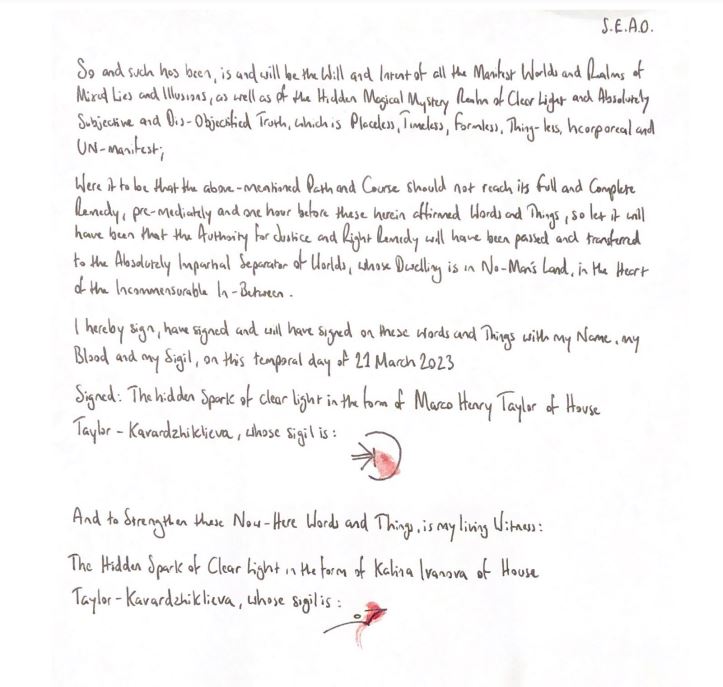 S.E.A.O.
So and such has been, is and will be the Will and Intent of all the Manifest Worlds and Realms of
Mixed Lies and Illusions, as well as of the Hidden Magical Mystery Realm of Clear Light and Absolutely
Subjective and Dis-Objectified Truth, which is Placeless, Timeless, Formless, Thing-less, Incorporeal and
UN-manifest;
Were it to be that the above-mentioned Path and Course should not reach its Full and Complete
Remedy, pre-mediately and one hour before these herein affirmed Words and Things, so let it will
have been that the Authority for Justice and Right Remedy will have been passed and transferred
to the Absolutely Impartial Separator of Worlds, whose Dwelling is in No-Man's Land, in the Heart
of the Incommensurable In-Between.
I hereby sign, have signed and will have signed on these words and Things with my Name, my
Blood and my Sigil, on this temporal day of 21 March 2023
Signed: The hidden Spark of clear light in the form of Marco Henry Taylor of House
Taylor-Kavardzhiklieva, whose sigil is:
And to Strengthen these Now-Here Words and Things, is my living Witness:
The Hidden Spark of Clear Light in the form of Kalina Ivanova of House
Taylor-Kavardzhiklieva, whose sigil is: